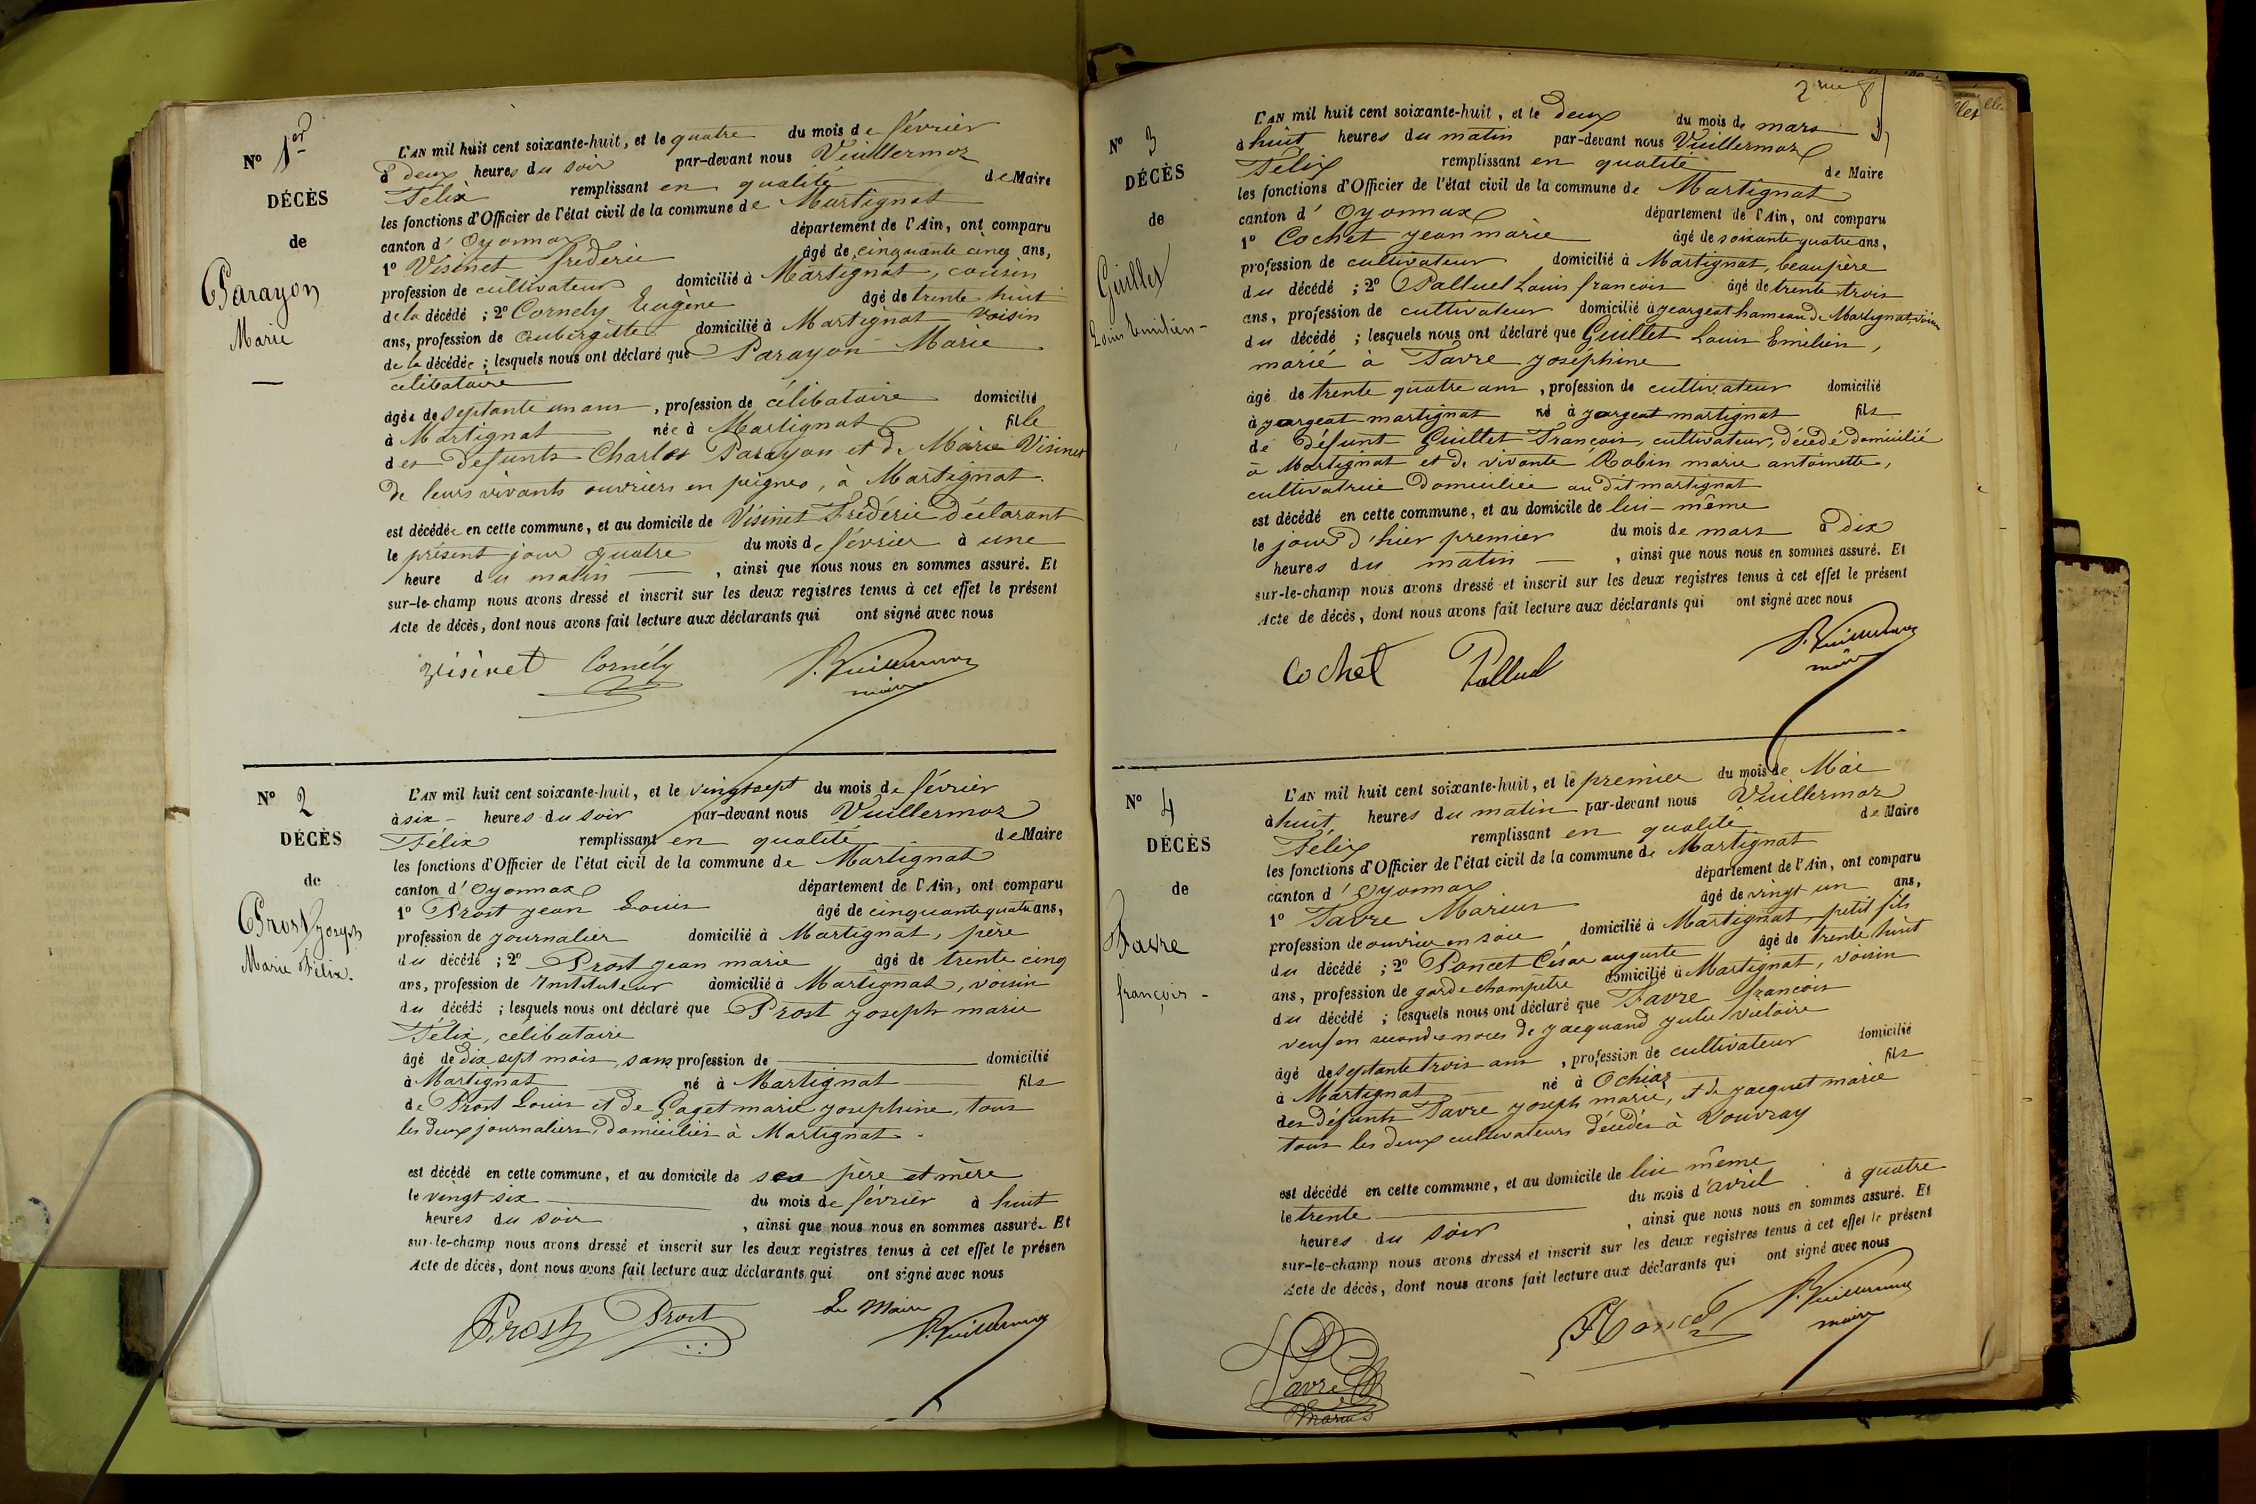 N° 1er
DÉCÈS
de
Parayon
Marie
L'AN mil huit cent soixante-huit, et le quatre du mois de février
à deux heures du soir par-devant nous Vuillermoz
Félix remplissant en qualité de Maire
les fonctions d'Officier de l'état civil de la commune de Martignat
canton d' Oyonnax département de l'Ain, ont comparu
1° Visinet frédéric âgé de cinquante cinq ans,
profession de cultivateur domicilié à Martignat, cousin
de la décédé ; 2° Cornely Eugène âgé de trente huit
ans, profession de Aubergiste domicilié à Martignat voisin
de la décédée ; lesquels nous ont déclaré que Parayon Marie
célibataire
âgée de septante un ans, profession de célibataire domicilié
à Martignat née à Martignat fille
des défunts Charles Parayon et de Marie Visinet
de leurs vivants ouvriers en peignes, à Martignat.
est décédée en cette commune, et au domicile de Visinet Frédéric déclarant
le présent jour quatre du mois de février à une
heure du matin , ainsi que nous nous en sommes assuré. Et
sur-le-champ nous avons dressé et inscrit sur les deux registres tenus à cet effet le présent
Acte de décès, dont nous avons fait lecture aux déclarants qui ont signé avec nous
visinet Cornély F. Vuillermoz
maire
N° 2
DÉCÈS
de
Prost joseph
Marie Félix.
L'AN mil huit cent soixante-huit, et le vingt sept du mois de février
à six heures du soir par-devant nous Vuillermoz
Félix remplissant en qualité de Maire
les fonctions d'Officier de l'état civil de la commune de Martignat
canton d' Oyonnax département de l'Ain, ont comparu
1° Prost jean Louis âgé de cinquante quatre ans,
profession de journalier domicilié à Martignat, père
du décédé ; 2° Prost jean marie âgé de trente cinq
ans, profession de Instituteur domicilié à Martignat, voisin
du décédé ; lesquels nous ont déclaré que Prost joseph marie
Félix, célibataire
âgé de dix sept mois, sans profession de domicilié
à Martignat né à Martignat fils
de Prost Louis et de Gaget marie josephine, tous
les deux journaliers, domiciliés à Martignat.
est décédé en cette commune, et au domicile de ses père et mère
le vingt six du mois de février à huit
heures du soir , ainsi que nous nous en sommes assuré. Et
sur-le-champ nous avons dressé et inscrit sur les deux registres tenus à cet effet le présen
Acte de décès, dont nous avons fait lecture aux déclarants qui ont signé avec nous
Prost Prost Le Maire
F. Vuillermoz
2me
N° 3
DÉCÈS
de
Guillet
Louis Emilien
L'AN mil huit cent soixante-huit, et le deux du mois de mars
à huit heures du matin par-devant nous Vuillermoz
Félix remplissant en qualité de Maire
les fonctions d'Officier de l'état civil de la commune de Martignat
canton d' Oyonnax département de l'Ain, ont comparu
1° Cochet jean marie âgé de soixante quatre ans,
profession de cultivateur domicilié à Martignat, beau père
du décédé ; 2° Palluel Louis francois âgé de trente trois
ans, profession de cultivateur domicilié à yeargeat hameau de Martignat, voisin
du décédé ; lesquels nous ont déclaré que Guillet Louis Emilien,
marié à Favre joséphine
âgé de trente quatre ans, profession de cultivateur domicilié
à yeargeat martignat né à yeargeat martignat fils
de défunt Guillet François, cultivateur, décédé domicilié
à Martignat et de vivante Robin marie antoinette,
cultivatrice domiciliée au dit martignat
est décédé en cette commune, et au domicile de lui-même
le jour d'hier premier du mois de mars à dix
heures du matin , ainsi que nous nous en sommes assuré. Et
sur-le-champ nous avons dressé et inscrit sur les deux registres tenus à cet effet le présent
Acte de décès, dont nous avons fait lecture aux déclarants qui ont signé avec nous
Cochet Palluel F. Vuillermoz
maire
N° 4
DÉCÈS
de
Favre
françois
L'AN mil huit cent soixante-huit, et le premier du mois de Mai
à huit heures du matin par-devant nous Vuillermoz
Félix remplissant en qualité de Maire
les fonctions d'Officier de l'état civil de la commune de Martignat
canton d' Oyonnax département de l'Ain, ont comparu
1° Favre Marius âgé de vingt un ans,
profession de ouvrier en soie domicilié à Martignat, petit fils
du décédé ; 2° Poncet César auguste âgé de trente huit
ans, profession de garde champetre domicilié à Martignat, voisin
du décédé ; lesquels nous ont déclaré que Favre francois
veuf en secondes noces de jacquand julie victoire
âgé de septante trois ans, profession de cultivateur domicilié
à Martignat né à Ochiaz fils
des défunts Favre joseph marie, et de jacquet marie
tous les deux cultivateurs décédés à Vouvray
est décédé en cette commune, et au domicile de lui même
le trente du mois d'avril à quatre
heures du soir , ainsi que nous nous en sommes assuré. Et
sur-le-champ nous avons dressé et inscrit sur les deux registres tenus à cet effet le présent
Acte de décès, dont nous avons fait lecture aux déclarants qui ont signé avec nous
Favre Poncet F. Vuillermoz
Marius maire